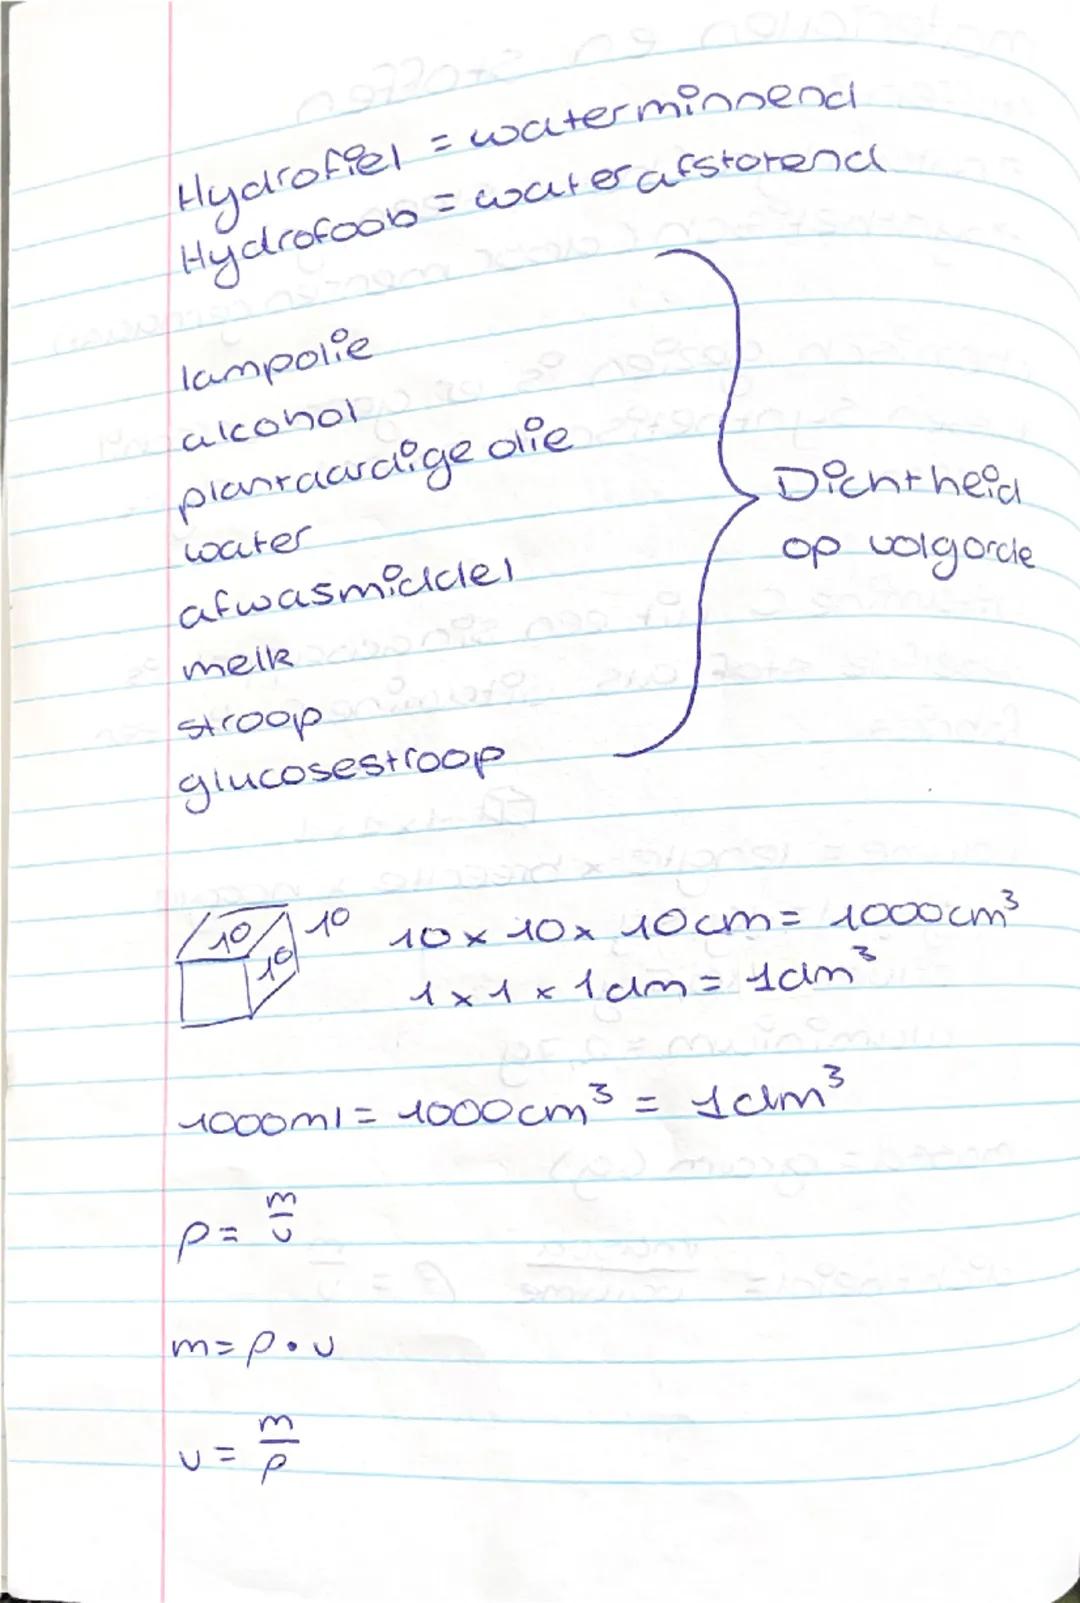 Hydrofiel = waterminnend
Hydrofoob = waterafstotend
lampolie
alcohol
plantaardige olie
water
afwasmiddel
melk
stroop
glucosestroop
Dichtheid
op volgorde
10 10 10
10 x 10 x 10cm = 1000cm³
1 x 1 x 1dm = 1dm³
1000ml = 1000cm³ = 1dm³
ρ = m/v
m = ρ • v
v = m/ρ